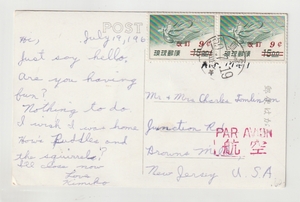 POST
Hi, July 19, 196
Just say hello.
Are you having
fun?
Nothing to do
I wish I was home
How's Puddles and
the squirrels?
I'll close now
Love
Kimiko
改訂 9¢
15.00
琉球郵便
改訂 9¢
15.00
琉球郵便
Mr + Mrs Charles Tomlinson
Junction
Browns Mills
New Jersey U SA
PAR AVION
航空